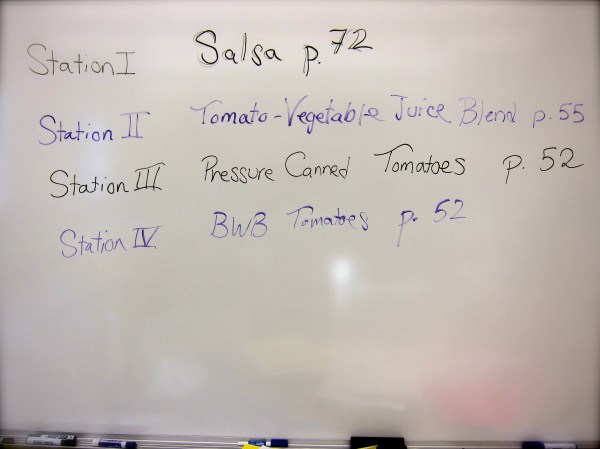 Station I Salsa p. 72
Station II Tomato-Vegetable Juice Blend p. 55
Station III Pressure Canned Tomatoes p. 52
Station IV BWB Tomatoes p. 52